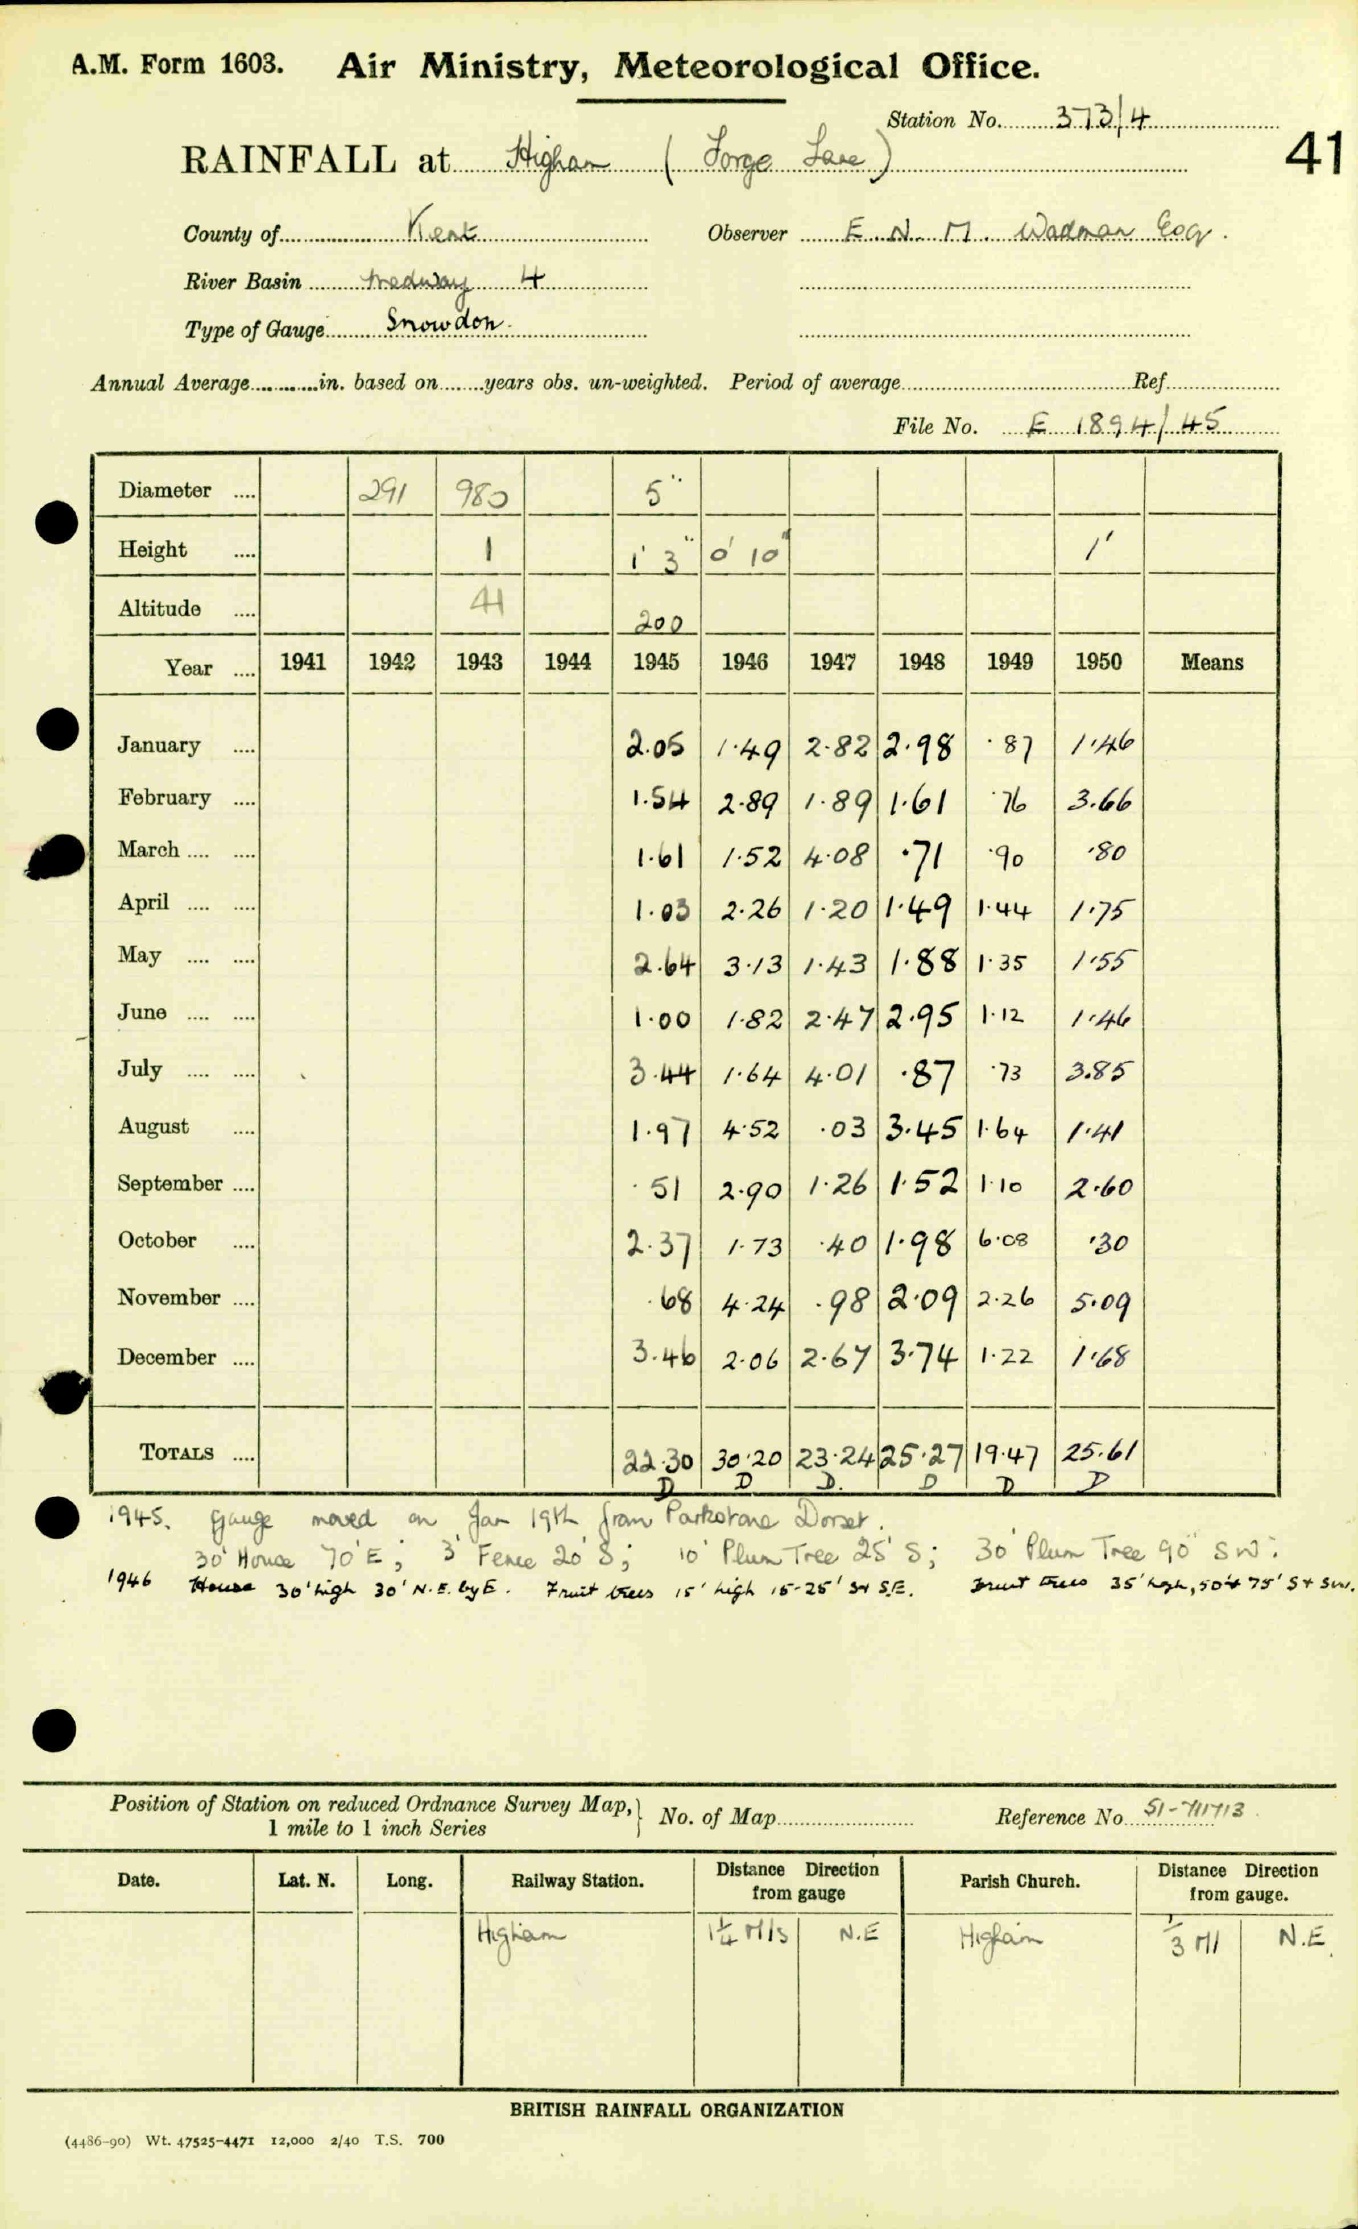 A.M. Form 1603. Air Ministry, Meteorological Office.
Station No. 373/4
41
RAINFALL at Higham (Forge Lane)
County of Kent Observer E. N. M. Wadman Esq.
River Basin Medway 4
Type of Gauge Snowdon.
Annual Average in. based on years obs. un-weighted. Period of average Ref.
File No. E 1894/45
Diameter 291 980 5"
Height 1 1' 3" 0' 10" 1'
Altitude 41 200
Year 1941 1942 1943 1944 1945 1946 1947 1948 1949 1950 Means
January 2.05 1.49 2.82 2.98 .87 1.46
February 1.54 2.89 1.89 1.61 .76 3.66
March 1.61 1.52 4.08 .71 .90 .80
April 1.03 2.26 1.20 1.49 1.44 1.75
May 2.64 3.13 1.43 1.88 1.35 1.55
June 1.00 1.82 2.47 2.95 1.12 1.46
July 3.44 1.64 4.01 .87 .73 3.85
August 1.97 4.52 .03 3.45 1.64 1.41
September .51 2.90 1.26 1.52 1.10 2.60
October 2.37 1.73 .40 1.98 6.08 .30
November .68 4.24 .98 2.09 2.26 5.09
December 3.46 2.06 2.67 3.74 1.22 1.68
TOTALS 22.30 30.20 23.24 25.27 19.47 25.61
D D D. D D D
1945. Gauge moved on Jan 19th from Parkstone Dorset.
30' House 70' E; 3' Fence 20' S; 10' Plum Tree 25' S; 30' Plum Tree 90' SW.
1946 House 30' high 30' N.E. by E. Fruit trees 15' high 15-25' S + S.E. Fruit trees 35' high, 50' + 75' S + SW.
Position of Station on reduced Ordnance Survey Map, 1 mile to 1 inch Series } No. of Map Reference No. 51-711713
Date. Lat. N. Long. Railway Station. Distance Direction from gauge Parish Church. Distance Direction from gauge.
Higham 1¼ Mls N.E Higham 1/3 Ml N.E.
BRITISH RAINFALL ORGANIZATION
(4486-90) Wt. 47525-4471 12,000 2/40 T.S. 700